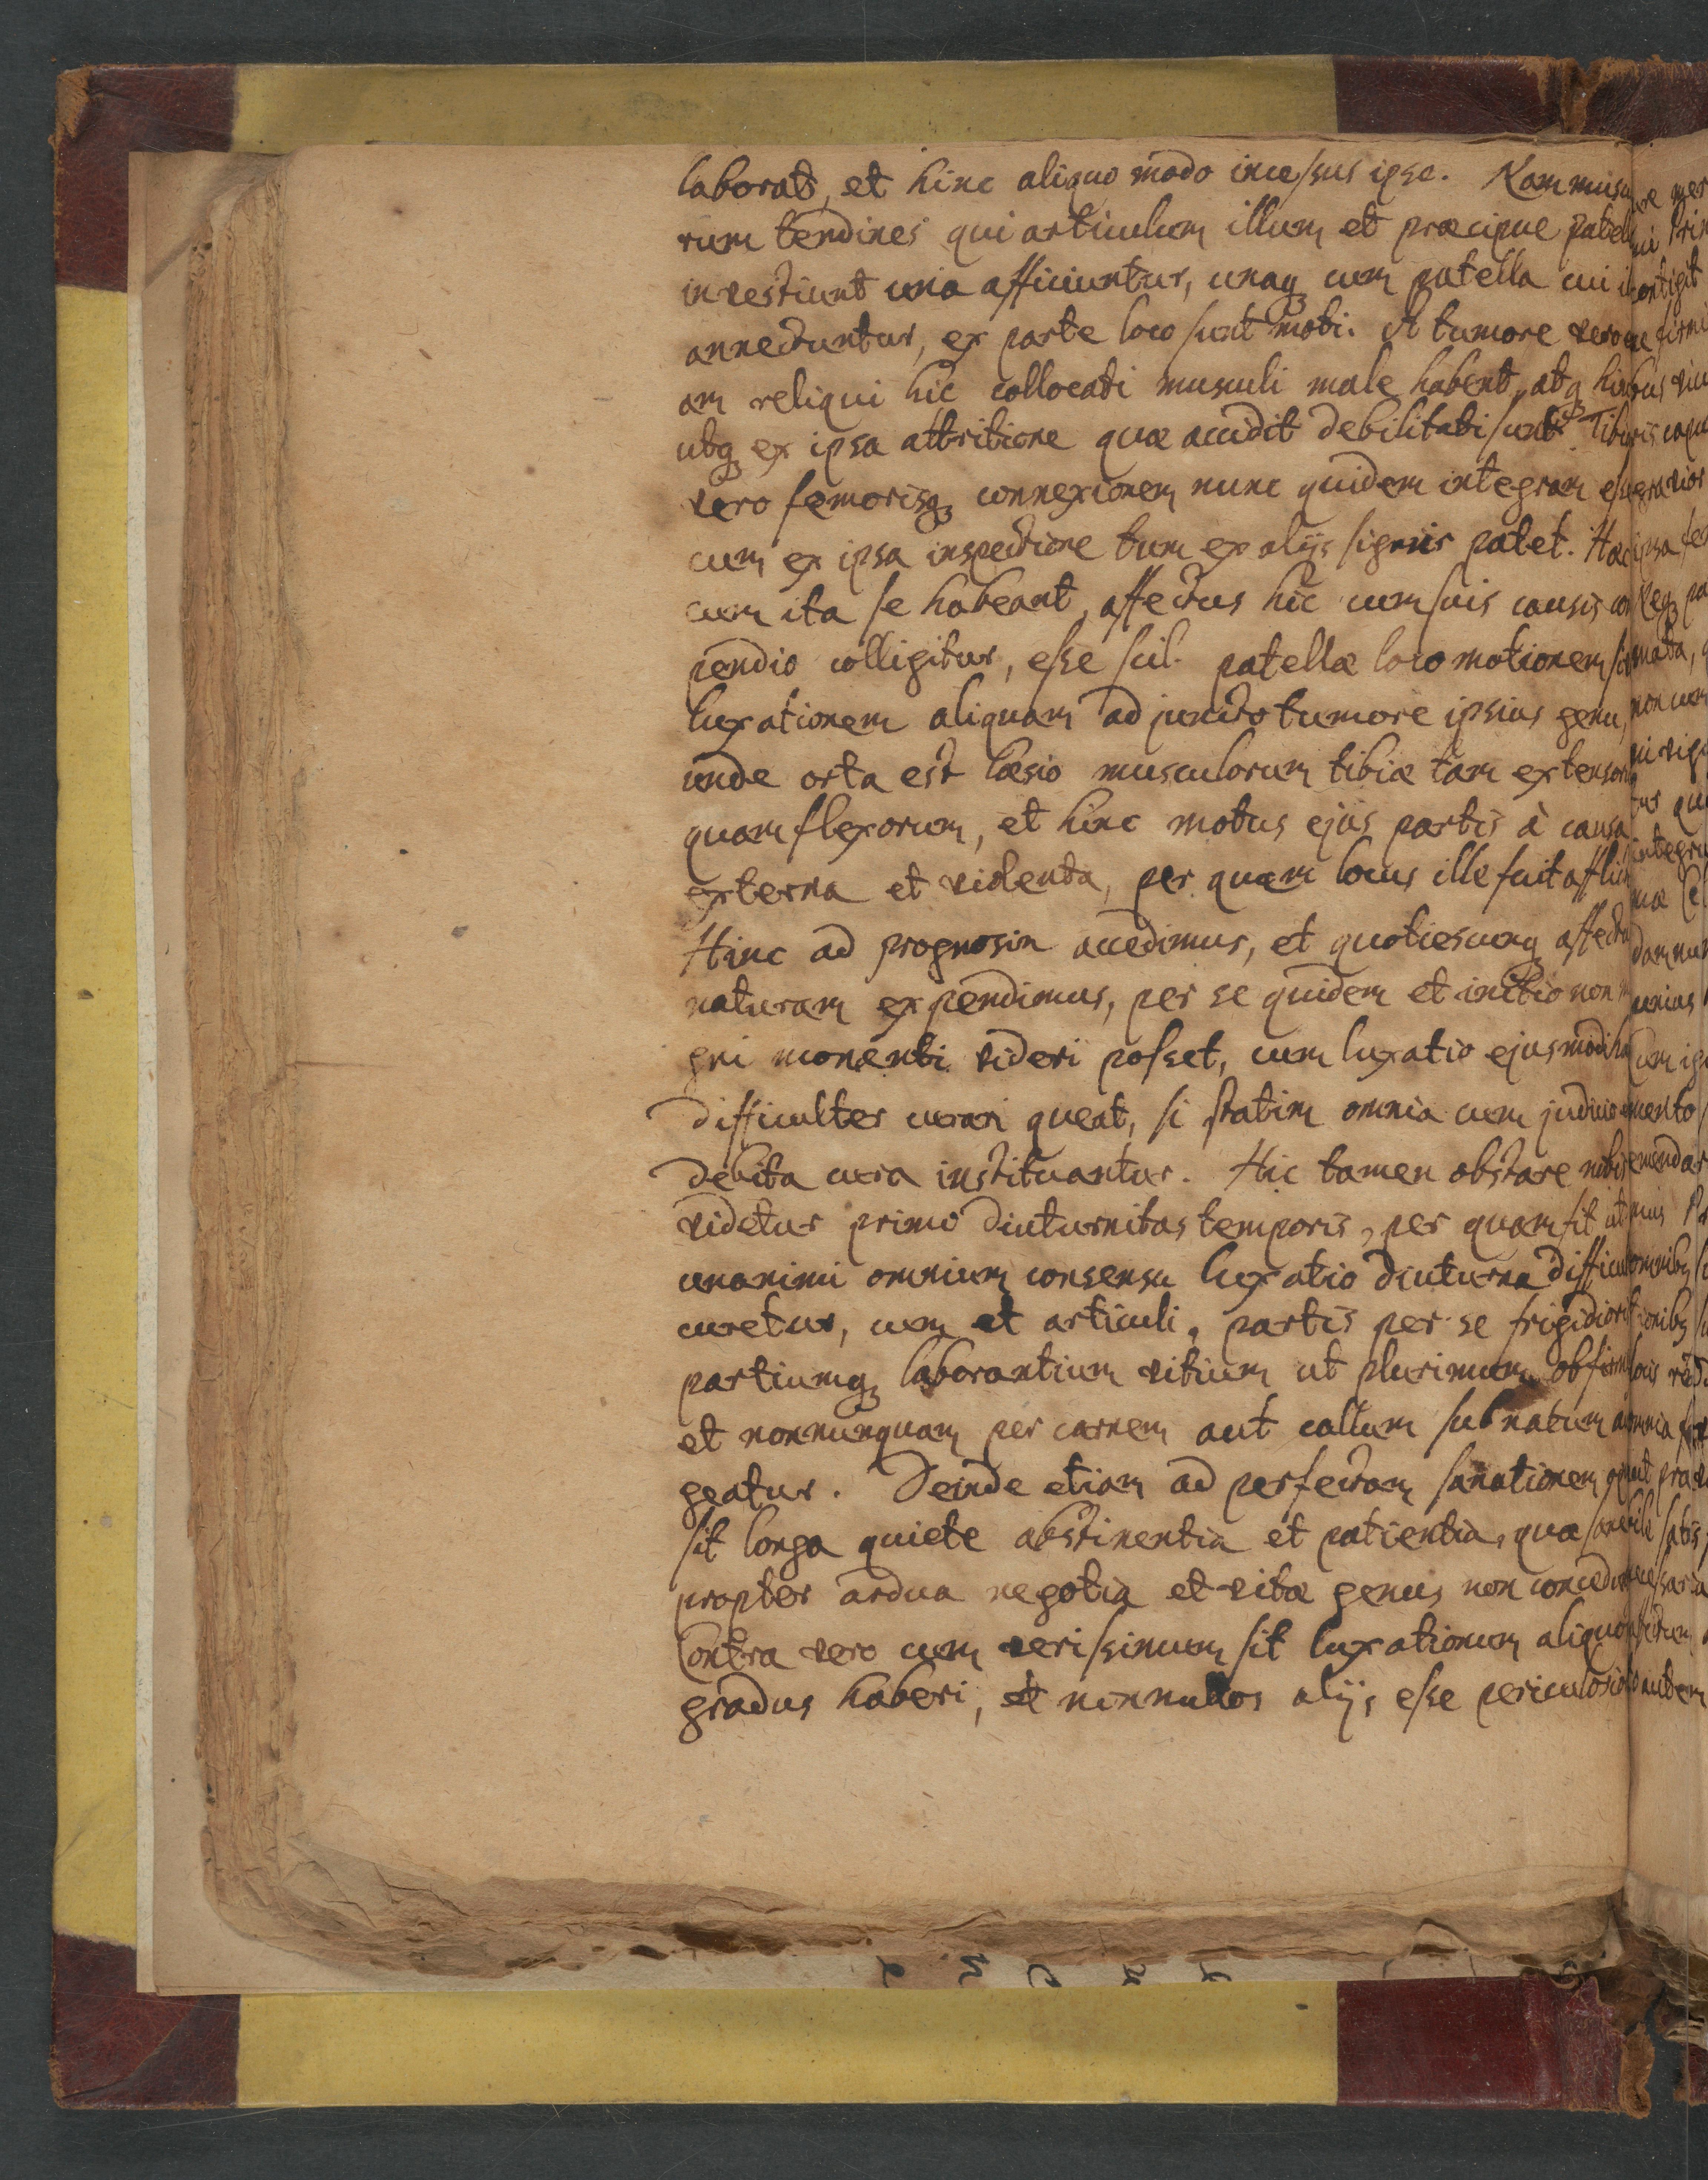 laborat, et hinc aliquo modo incessus ipse. Nam muscu
rum tendines qui articulum illum et praecipue patell
investiunt una afficiuntur, unaq; cum patella cui i
annectuntur, ex parte loco sunt moti. A tumore vero
am reliqui hic collocati musculi male habent, atq; hi
utq; ex ipsa attritione quae accidit debilitati sunt. Tibi
vero femorisq; connexionem nunc quidem integram es
cum ex ipsa inspectione tum ex alijs signis patet. Haec
cum ita se habeant, affectus hic cum suis causis com
pendio colligitur, esse scil. patellae loco motionem si
luxationem aliquam adjuncto tumore ipsius genu,
unde orta est laesio musculorum tibiae tam extensor
quam flexorum, et hinc motus ejus partis à causa
externa et violenta, per quam locus ille fuit afflic
Hinc ad prognosin accedimus, et quotiescunq; affectu
naturam expendimus, per se quidem et initio non m
gni momenti videri posset, cum luxatio ejusmodi ha
difficulter curari queat, si statim omnia cum judicio
debita cura instituantur. Hic tamen obstare nobis
videtur primo diuturnitas temporis, per quam fit ut
unanimi omnium consensu luxatio diuturna difficul
curetur, cum et articuli, partis per se frigidioris
partiumq; laborantium vitium ut plurimum obfirm
et nonnunquam per carnem aut callum subnatum au
geatur. Deinde etiam ad perfectam sanationem opus
sit longa quiete abstinentia et patientia, quae sane
propter ardua negotia et vitae genus non concedun
Contra vero cum verissimum sit luxationum aliquo
gradus haberi, et nonnullos alijs esse periculosio